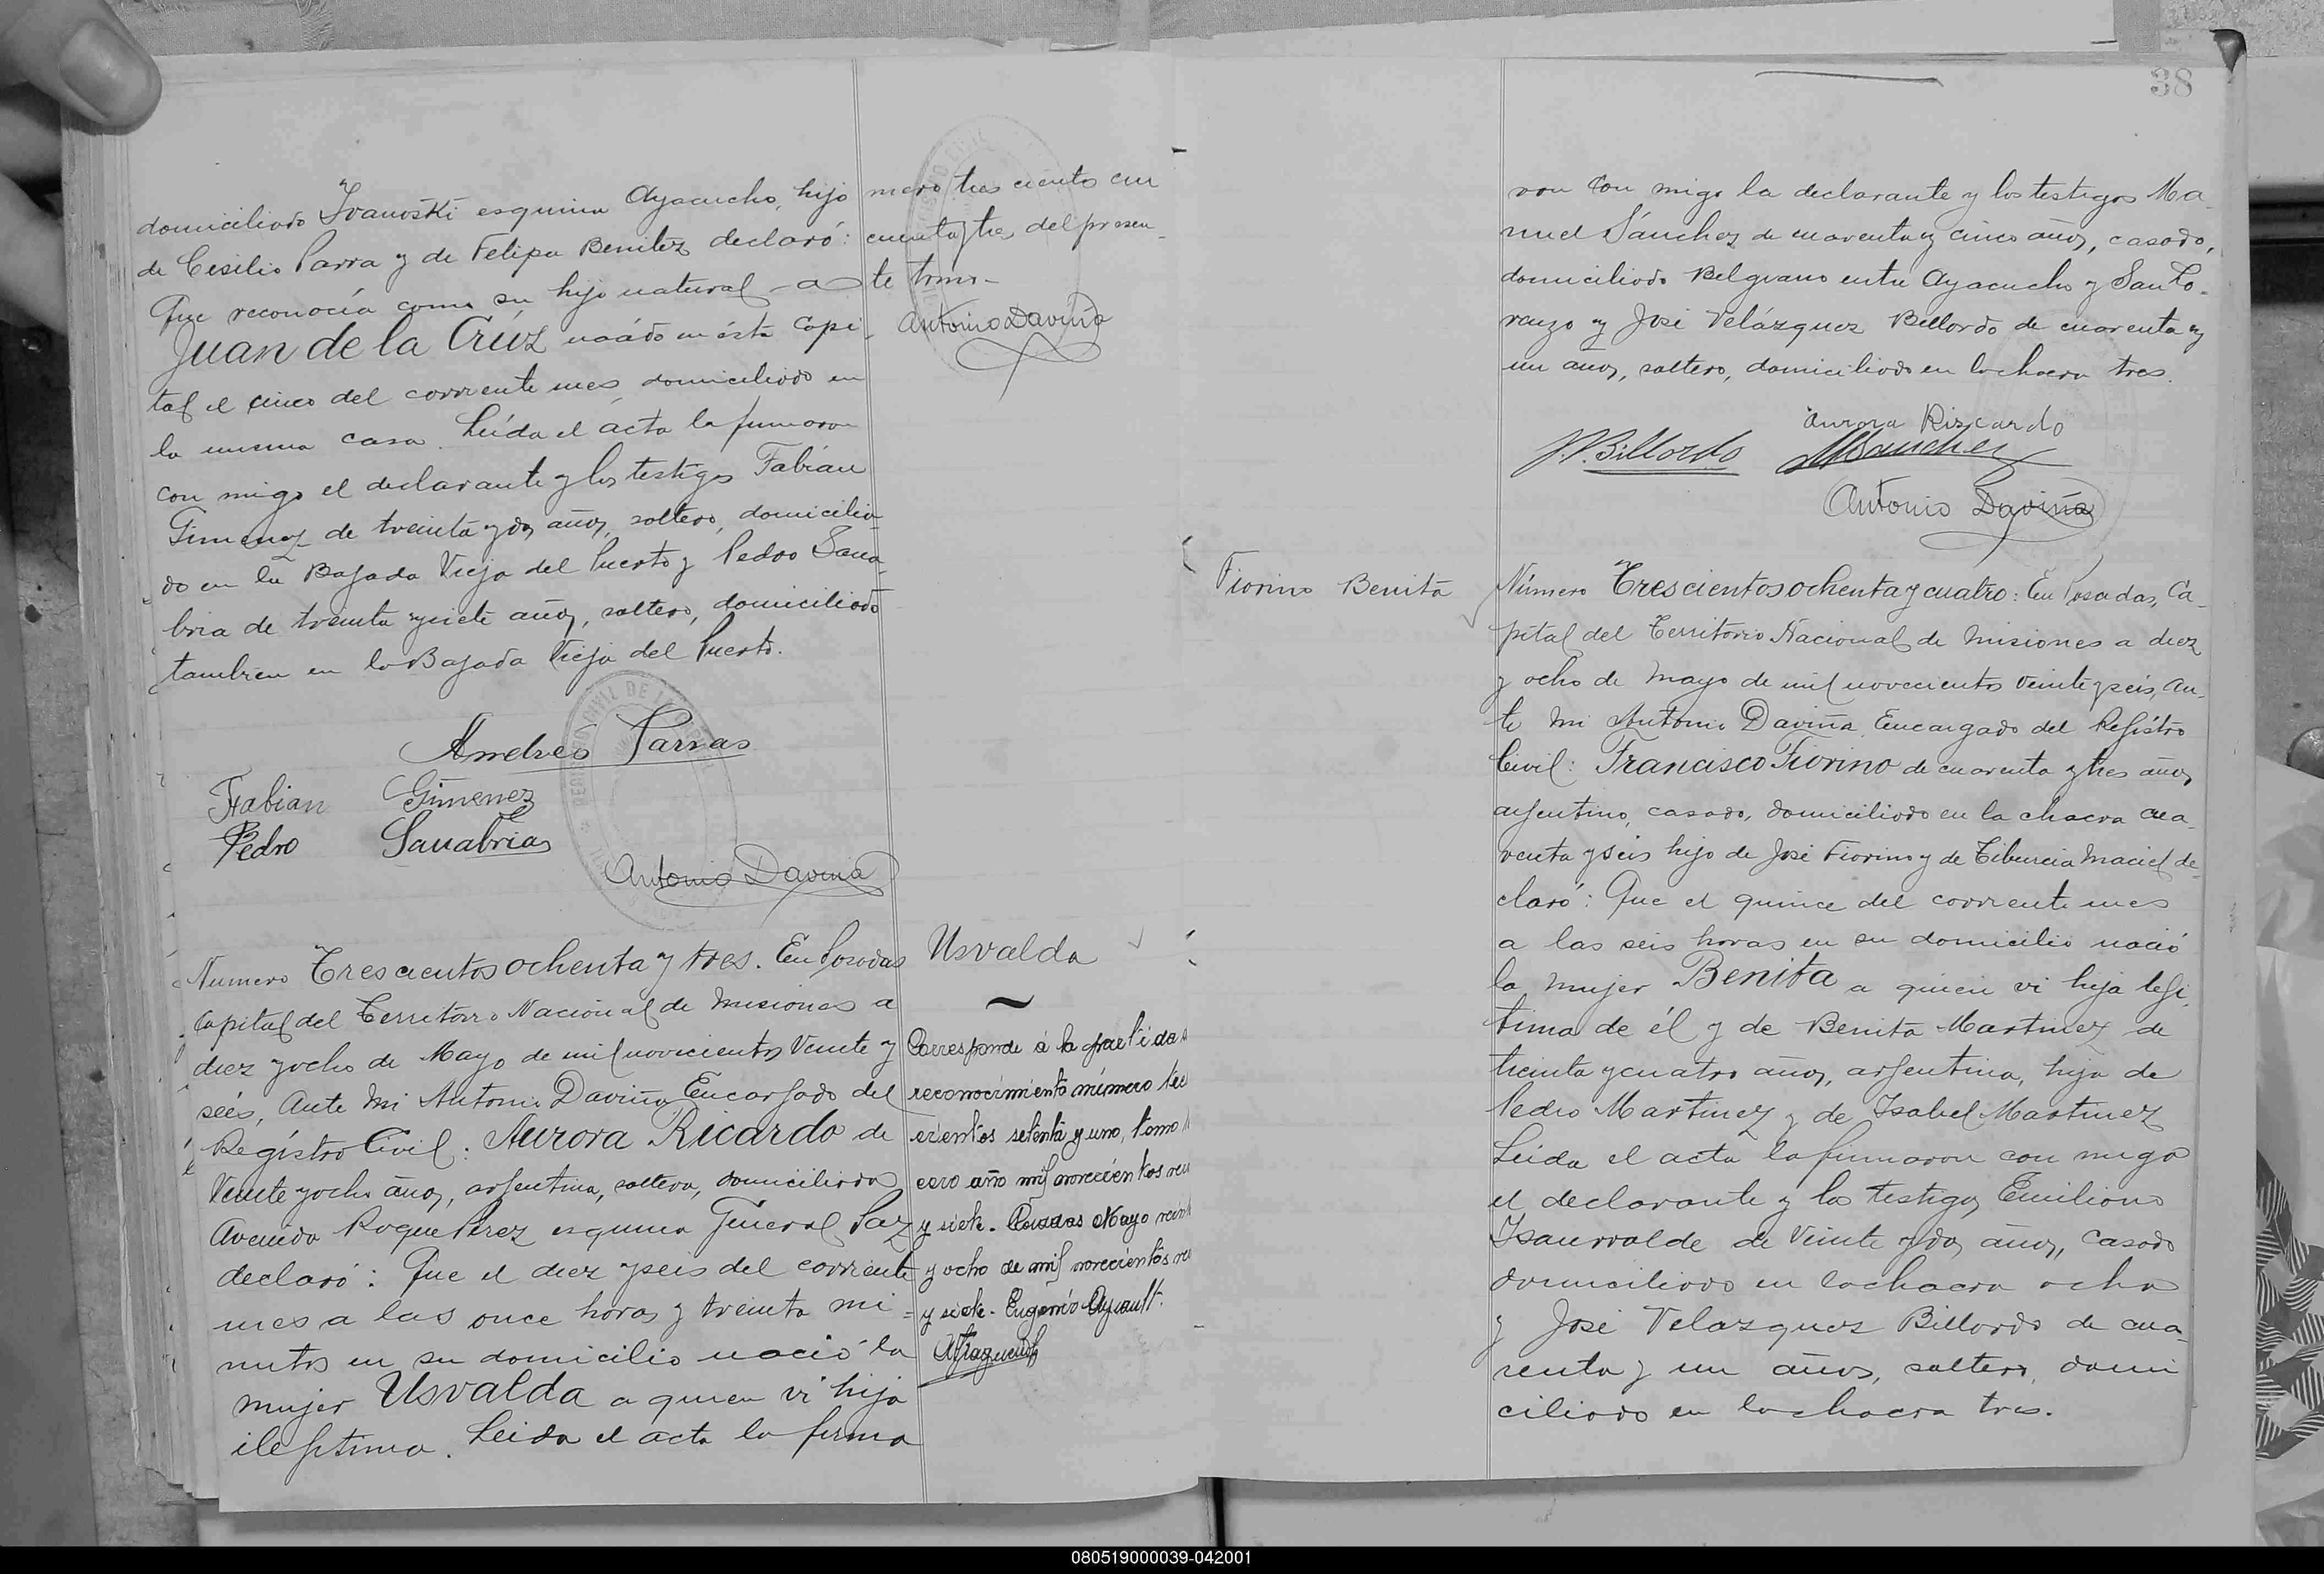 domiciliado Ivanoski esquina Ayacucho, hijo
de Cesilio Parra y de Felipa Benitez declaró:
Que reconocía como su hijo natural - a
Juan de la Crúz nacido en ésta Capi-
tal el cinco del corriente mes, domiciliado en
la misma casa. Leída el acta la firmaron
con migo el declarante y los testigos Fabián
Gimenez de treinta y dos años, soltero, domicilia-
do en la Bajada Vieja del Puerto y Pedro Sana-
bria de treinta y siete años, soltero, domiciliado
tambien en la Bajada Vieja del Puerto.
mero tres cientos cin
cuenta y tres del presen-
te tomo-
Antonio Daviña
Andres Parras
Fabian Gimenez
Pedro Sanabria
Antonio Daviña
Numero Trescientos ochenta y tres. En Posadas
Capital del Territorio Nacional de Misiones a
diez y ocho de Mayo de mil novecientos Veinte y
séis, Ante Mi Antonio Daviña Encargado del
Regístro Civil: Aurora Ricardo de
Veinte y ocho años, argentina, soltera, domiciliada
Avenida Roque Perez esquina General Paz
declaró: Que el diez y seis del corriente
mes a las once horas y treinta mi-
nutos en su domicilio nació la
mujer Usvalda a quien vi hija
ilegitima. Leida el acta la firma
Usvalda
Corresponde á la partida
reconocimiento número tres
cientos setenta y uno, tomo
cero año mil novecientos vein
y siete. Posadas Mayo vein
y ocho de mil novecientos ve
y siete. Eugenio
38
ron con migo la declarante y los testigos Ma-
nuel Sánchez de cuarenta y cinco años, casado,
domiciliado Belgrano entre Ayacucho y San Lo-
renzo y José Velázquez Billordo de cuarenta y
un años, soltero, domiciliado en la chacra tres.
Aurora Riscardo
J.V. Billordo MSanchez
Antonio Daviña
Fiorino Benita
Número Trescientos ochenta y cuatro: En Posadas, Ca-
pital del Territorio Nacional de Misiones a diez
y ocho de Mayo de mil novecientos Veinte y seis, An-
te Mi Antonio Daviña Encargado del Regístro
Civil: Francisco Fiorino de cuarenta y tres años
argentino, casado, domiciliado en la chacra cua-
renta y seis hijo de José Fiorino y de Tiburcia Maciel de-
claró: Que el quince del corriente mes
a las seis horas en su domicilio nació
la mujer Benita a quien vi hija legi-
tima de él y de Benita Martinez de
treinta y cuatro años, argentina, hija de
Pedro Martinez y de Isabel Martinez
Leida el acta la firmaron con migo
el declarante y los testigos Emiliano
Isaurralde de Veinte y dos años, Casado
domiciliado en la chacra ocho
y José Velazquez Billordo de cua-
renta y un años, soltero, domi
ciliado en la chacra tres.
080519000039-042001